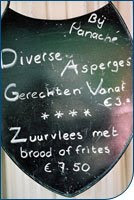 Bij
Panache
Diverse Asperges
Gerechten Vanaf
€3.
****
Zuurvlees met
brood of frites
€ 7.50